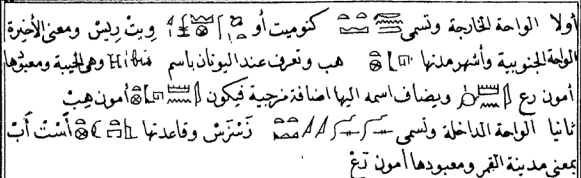 أولا الواحة الخارجة وتسمى كنوميت أو ويث ريس ومعنى الأخيرة
الواحة الجنوبية وأشهر مدنها هب وتعرف عند اليونان باسم Hibis وهى الهيبة ومعبودها
أمون رع ويضاف اسمه اليها اضافة مزجية فيكون أمون هب
ثانيا الواحة الداخلة وتسمى زسزس وقاعدتها أست أب
بمعنى مدينة القمر ومعبودها أمون نع